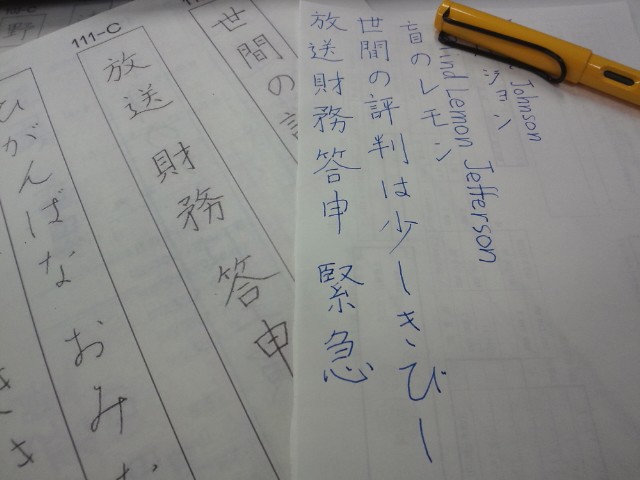 Johnson
ジョン
lind Lemon Jefferson
盲のレモン
世間の評判は少しきびし
放送財務答申 緊急
世間の
111-C
放送 財務 答申
ひがんばな おみな
野